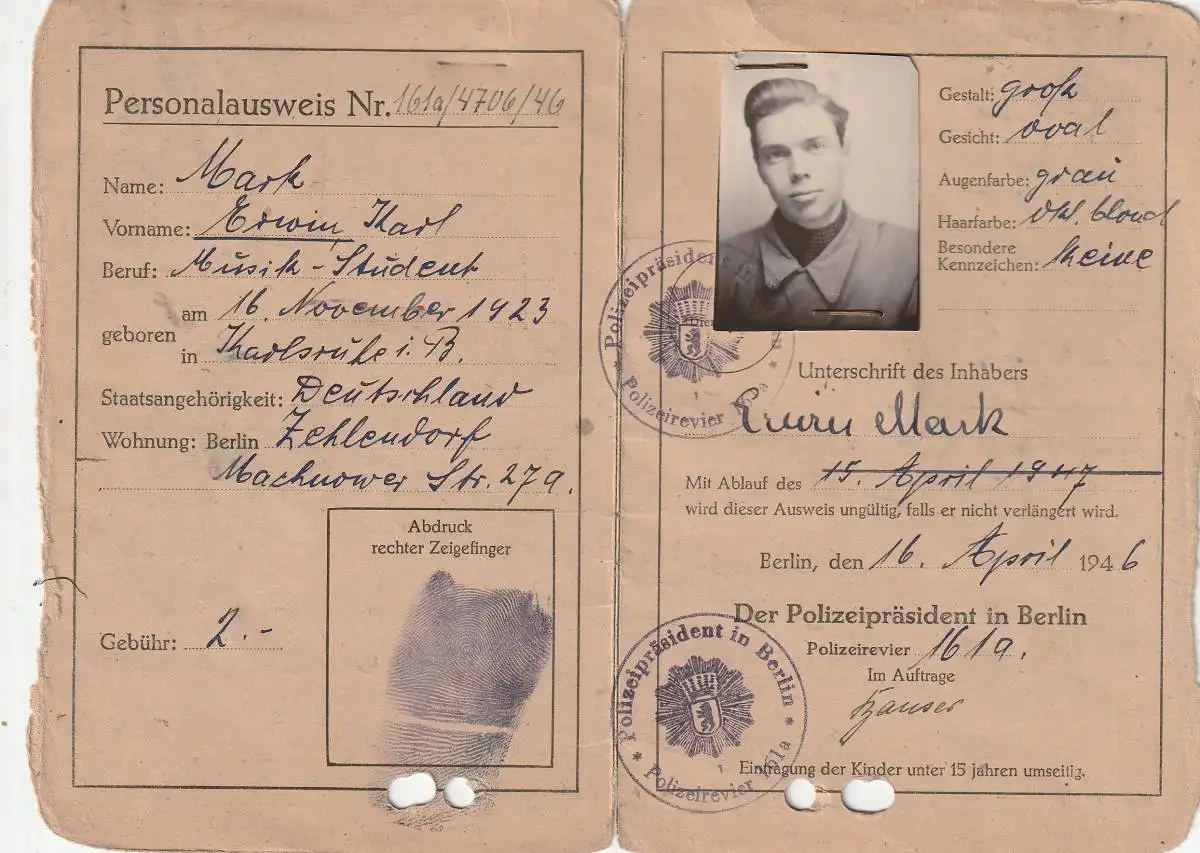 Personalausweis Nr. 161a/4706/46
Name: Mark
Vorname: Erwin, Karl
Beruf: Musik-Student
geboren am 16. November 1923
in Karlsruhe i. B.
Staatsangehörigkeit: Deutschland
Wohnung: Berlin Zehlendorf
Machnower Str. 27a.
Abdruck
rechter Zeigefinger
Gebühr: 2.-
Gestalt: groß
Gesicht: oval
Augenfarbe: grau
Haarfarbe: dkl. blond
Besondere
Kennzeichen: keine
* Polizeipräsident in
* Polizeirevier 161a *
Unterschrift des Inhabers
Erwin Mark
Mit Ablauf des 15. April 1947
wird dieser Ausweis ungültig, falls er nicht verlängert wird.
Berlin, den 16. April 1946
Der Polizeipräsident in Berlin
Polizeirevier 161a.
Im Auftrage
* Polizeipräsident in Berlin *
Polizeirevier 161a
1
Eintragung der Kinder unter 15 jahren umseitig.